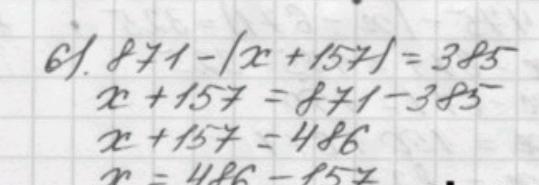 б). 871-(x+157)=385
x+157=871-385
x+157=486
x=486-157